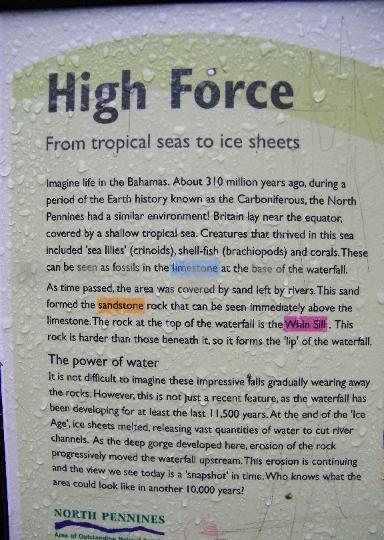 High Force
From tropical seas to ice sheets
Imagine life in the Bahamas. About 310 million years ago, during a
period of the Earth history known as the Carboniferous, the North
Pennines had a similar environment! Britain lay near the equator,
covered by a shallow tropical sea. Creatures that thrived in this sea
included 'sea lilies' (crinoids), shell-fish (brachiopods) and corals. These
can be seen as fossils in the limestone at the base of the waterfall.
As time passed, the area was covered by sand left by rivers. This sand
formed the sandstone rock that can be seen immediately above the
limestone. The rock at the top of the waterfall is the Whin Sill. This
rock is harder than those beneath it, so it forms the 'lip' of the waterfall.
The power of water
It is not difficult to imagine these impressive falls gradually wearing away
the rocks. However, this is not just a recent feature, as the waterfall has
been developing for at least the last 11,500 years. At the end of the 'Ice
Age', ice sheets melted, releasing vast quantities of water to cut river
channels. As the deep gorge developed here, erosion of the rock
progressively moved the waterfall upstream. This erosion is continuing
and the view we see today is a 'snapshot' in time. Who knows what the
area could look like in another 10,000 years?
NORTH PENNINES
Area of Outstanding